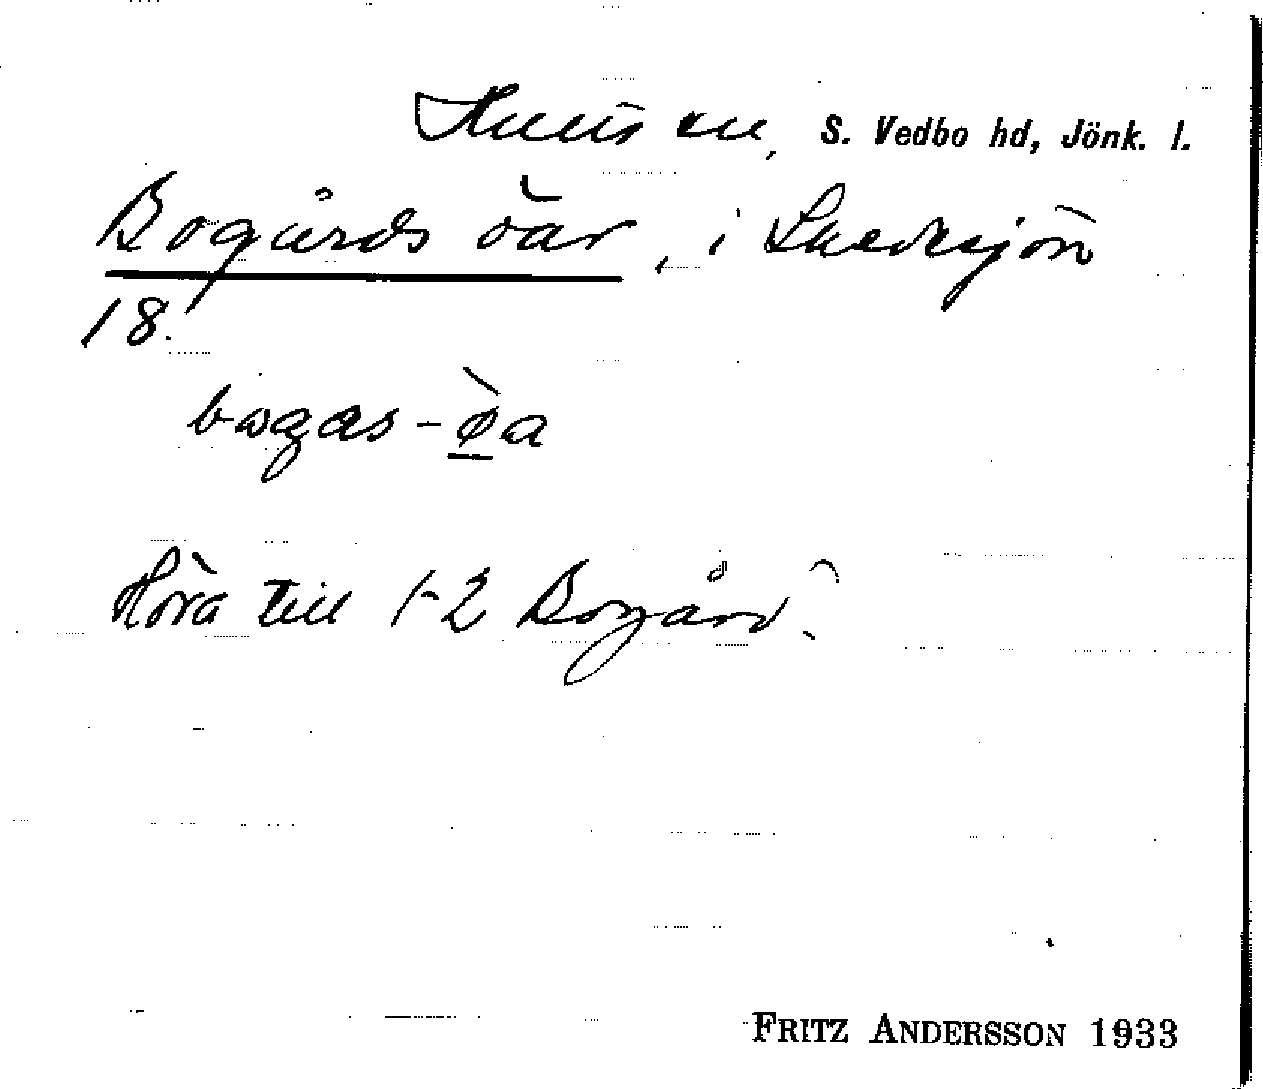 S. Vedbo hd, Jönk. l.
Bogårds öar, i
18.
bogas-öa
Höra till 1-2 Bogård.
FRITZ ANDERSSON 1933